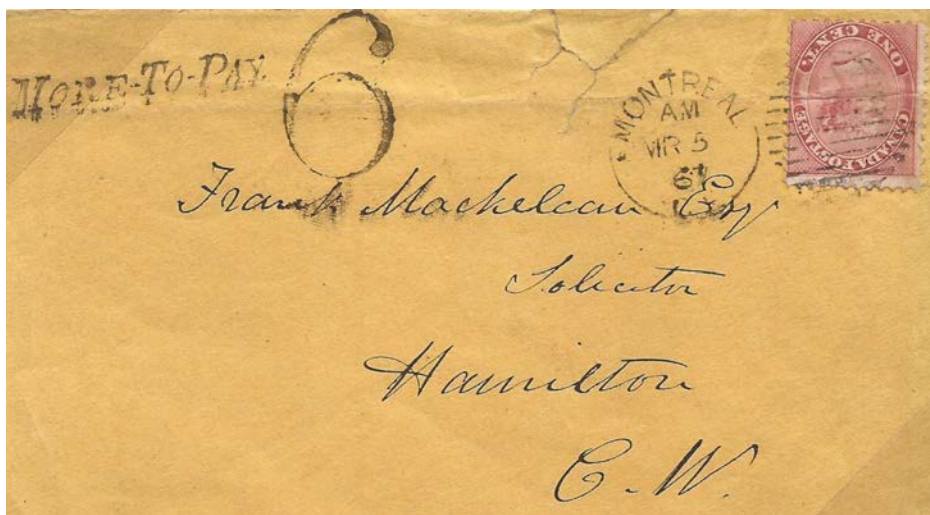 MORE-TO-PAY
6
MONTREAL
AM
MR 5
67
ONE CENT
CANADA POSTAGE
Frank Mackelcan Esq
Solicitor
Hamilton
C. W.